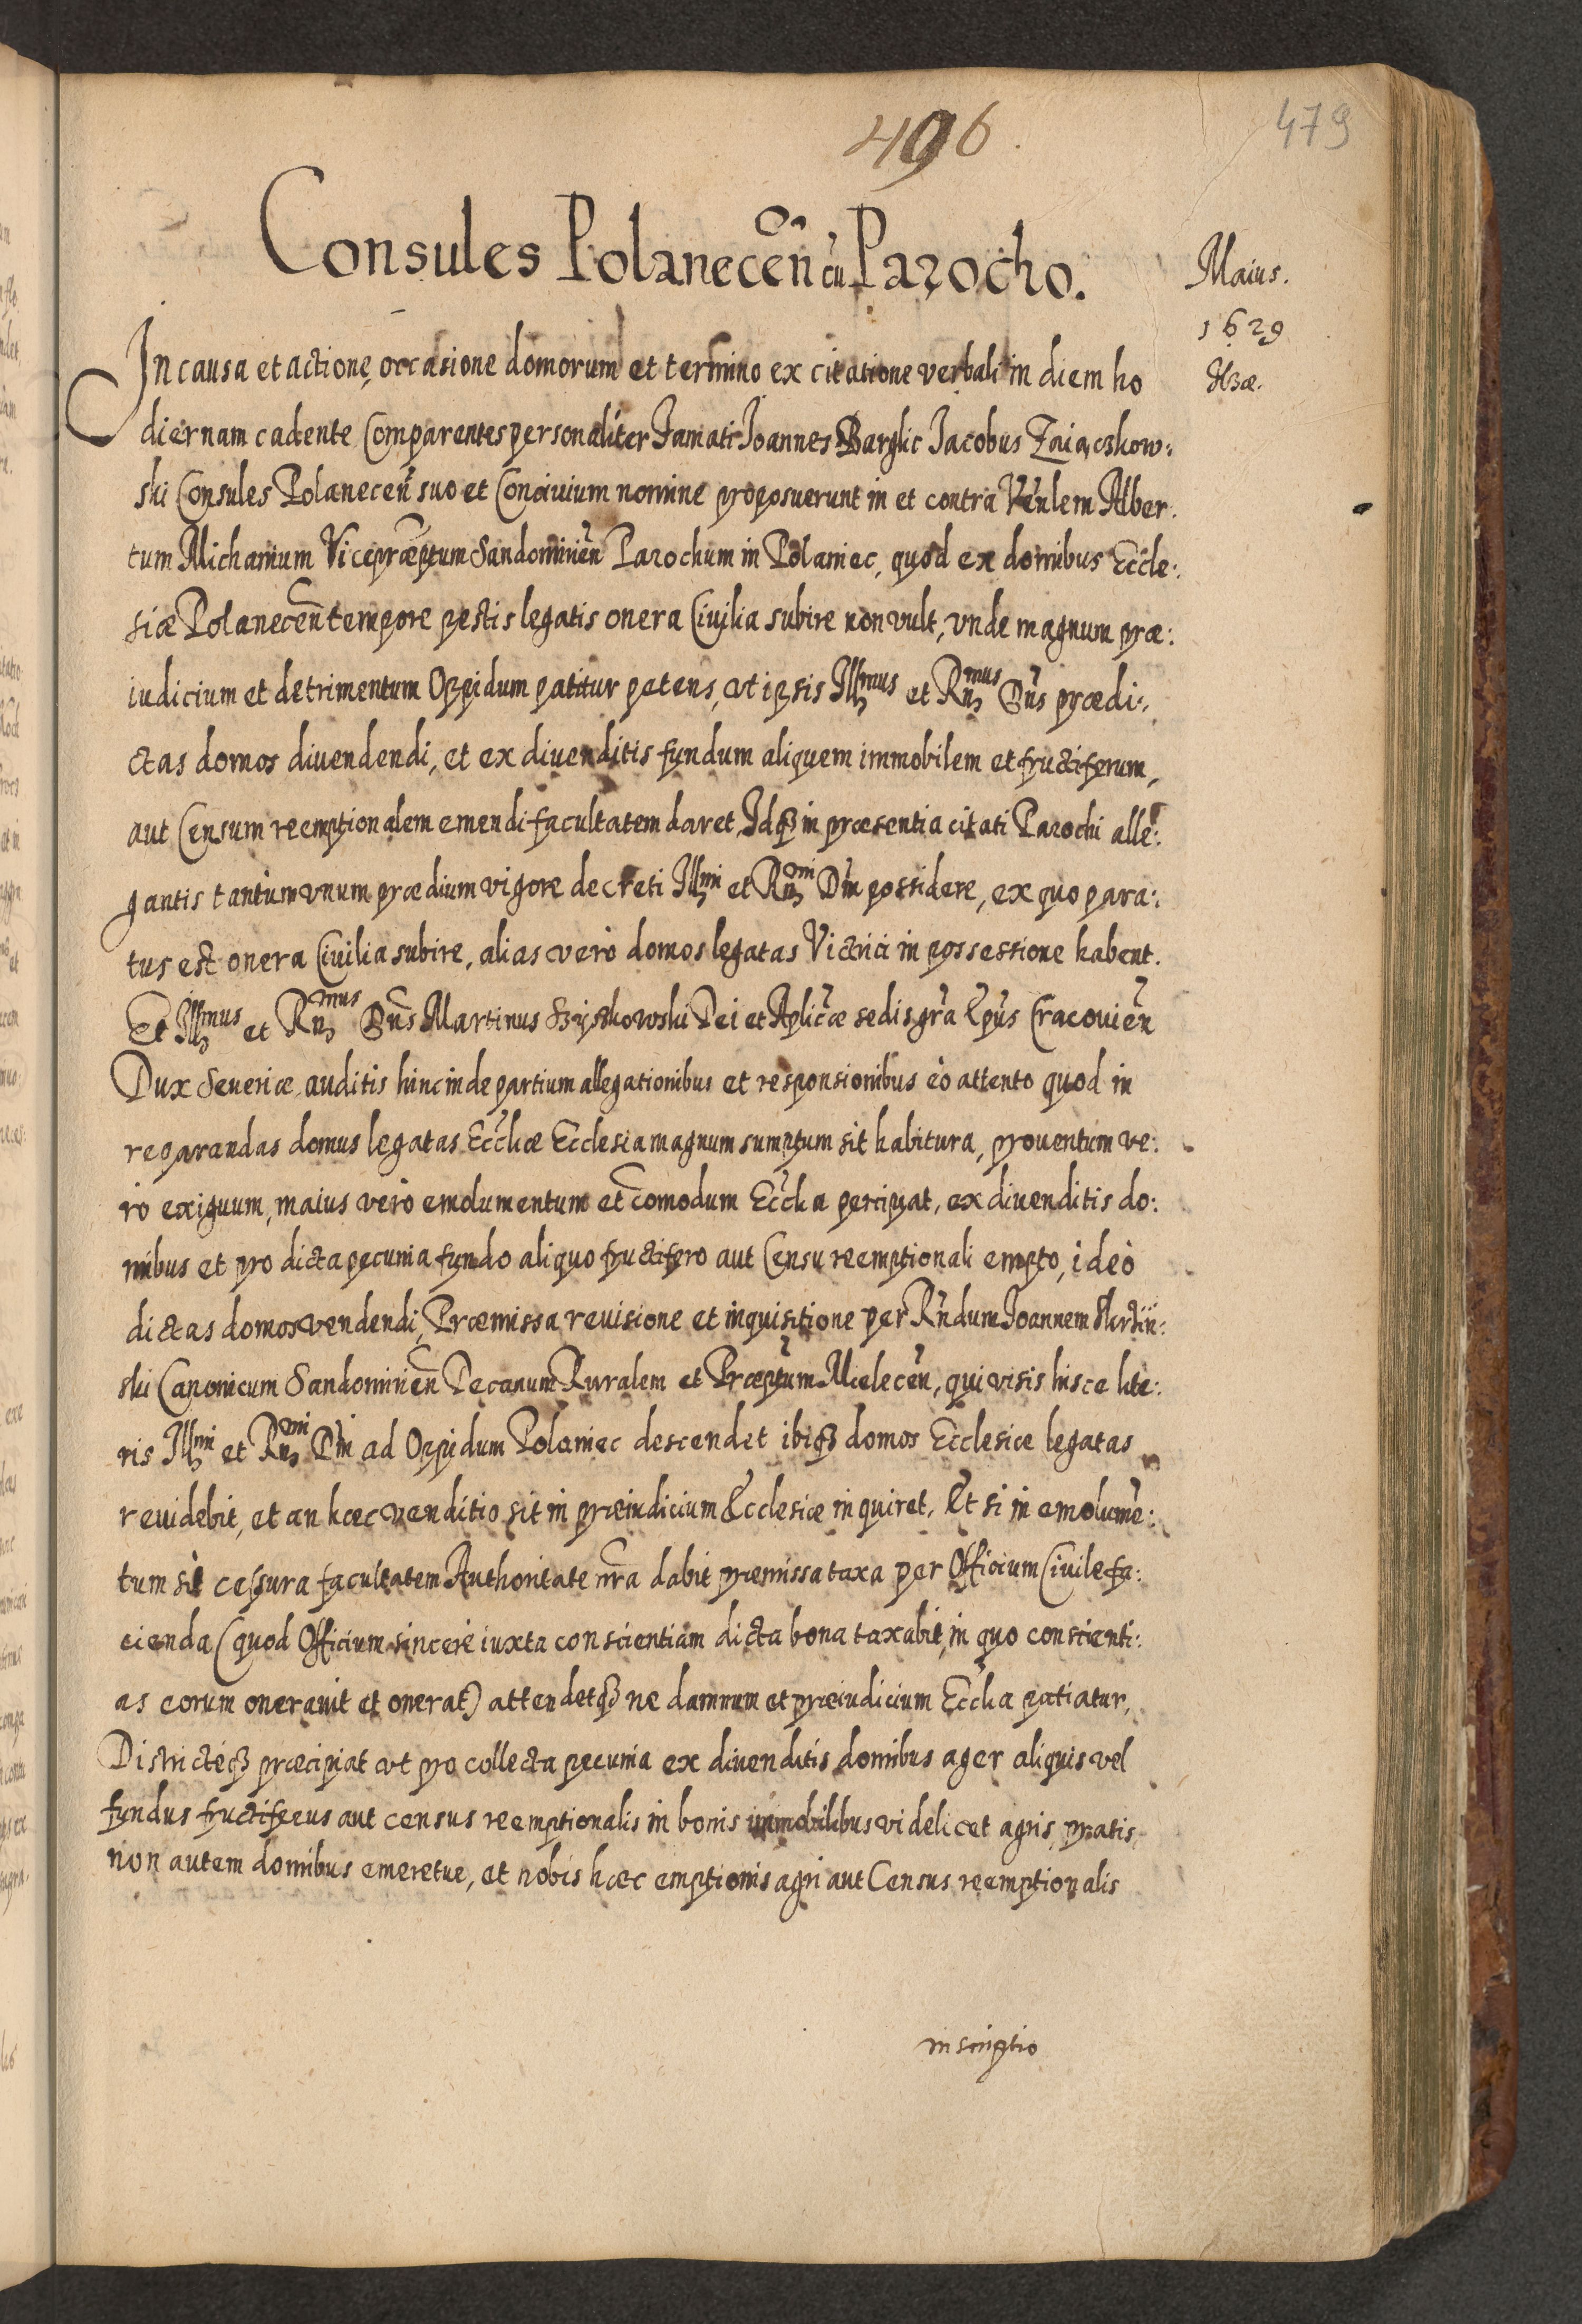 496
479
Consules Polanecen̄ cū Parocho.
Maius.
1629
In causa et actione, occasione domorum et termino ex citatione verbali in diem ho
diernam cadente Comparentes personaliter Famati Ioannes Barglic Iacobus Zaiączkow:
ski Consules Polanecen̄ suo et Conciuium nomine proposuerunt in et contra Venlem Alber:
tum Michanium Vicepræptum Sandomirien̄ Parochum in Polaniec, quod ex domibus Eccle:
siæ Polanecen̄ tempore pestis legatis onera Ciuilia subire non vult, vnde magnum præ:
iudicium et detrimentum Oppidum patitur petens, vt ipsis Illmus et Rnmus Dn̄s prædi:
ctas domos diuendendi, et ex diuenditis fundum aliquem immobilem et fructiferum,
aut Censum reemptionalem emendi facultatem daret, Idqȝ in præsentia citati Parochi alle:
gantis tantùm vnum prædium vigore decreti Illmi et Rnmi Dn̄i possidere, ex quo para:
tus est onera Ciuilia subire, alias verò domos legatas Victrici in possessione habent.
Et Illmus et Rnmus Dn̄s Martinus Szyszkowski Dei et Aplicæ sedis gra̅ Epus Cracouien̄
Dux Seueriæ auditis hincinde partium allegationibus et responsionibus eò attento quod in
reparandas domus legatas Ecclīæ Ecclesia magnum sumptum sit habitura, prouentum ve:
rò exiguum, maius verò emolumentum et com̄odum Ecclīa percipiat, ex diuenditis do:
mibus et pro dicta pecunia fundo aliquo fructifero aut Censu reemptionali empto, ideò
dictas domos vendendi, Præmissa reuisione et inquisitione per Rndum Ioannem
ski Canonicum Sandomirien̄ Decanum Ruralem et Præptum Mielecen̄, qui visis hisce lite:
ris Illmi et Rnmi Dn̄i ad Oppidum Polaniec descendet ibiqȝ domos Ecclesiæ legatas
reuidebit, et an hæc venditio sit in præiudicium Ecclesiæ inquiret, Et si in emolume̅:
tum sit cessura facultatem Authoritate nr̄a dabit præmissa taxa per Officium Ciuile fa:
cienda (quod Officium sincerè iuxta conscientiam dicta bona taxabit, in quo conscienti:
as eorum onerauit et onerat) attendetqȝ ne damnum et præiudicium Ecclīa patiatur,
Districtéqȝ præcipiat vt pro collecta pecunia ex diuenditis domibus ager aliquis vel
fundus fructiferus aut census reemptionalis in bonis immobilibus videlicet agris, pratis,
non autem domibus emeretur, et nobis hæc emptionis agri aut Census reemptionalis
inscriptio